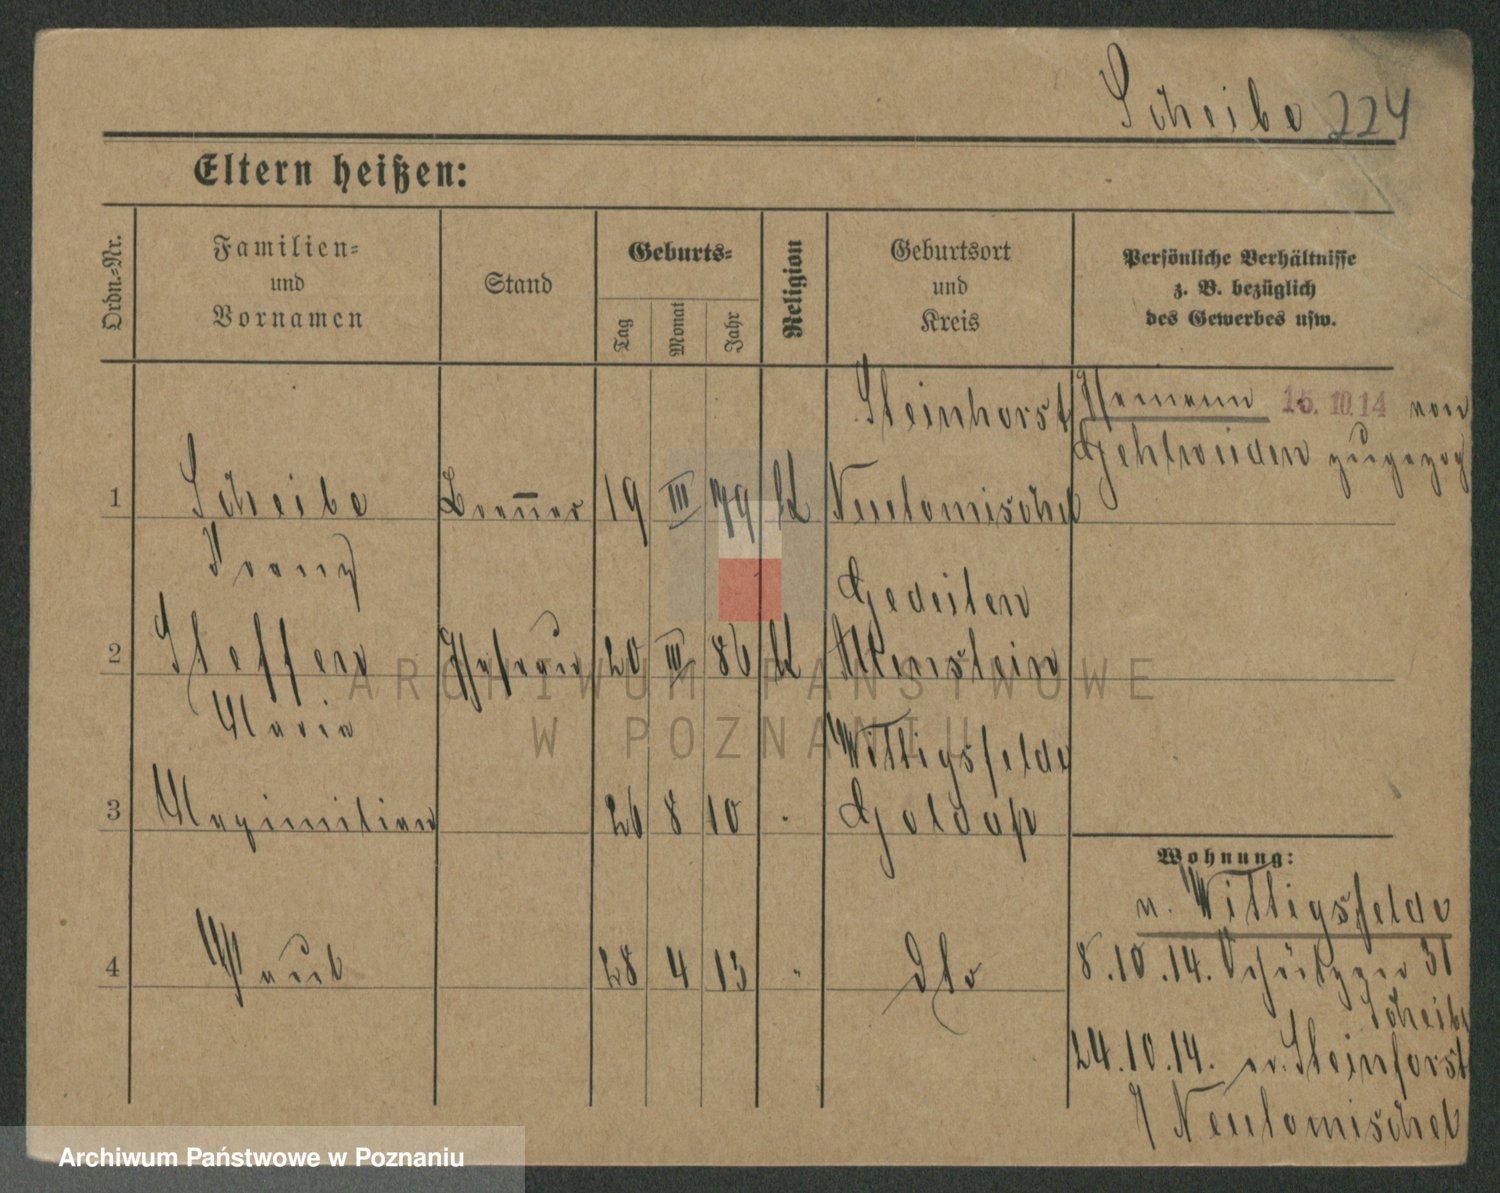 Scheibe 224
Eltern heißen:
Ordn.=Nr.
Familien=
und
Vornamen
Stand
Geburts=
Tag
Monat
Jahr
Religion
Geburtsort
und
Kreis
Persönliche Verhältnisse
z. B. bezüglich
des Gewerbes usw.
Steinhorst
15.10.14 von
Gehlweiden zugezog
1 Scheibe Brenner 19 III 79 k Neutomischel
Franz
Gedeiten
2 Steffen Ehefrau 20 III 86 k Allenstein
Maria
Wittigsfelde
3 Maximilian 26 8 10 Goldap
Wohnung:
n. Wittigsfelde
8.10.14. Schützen 31
4 Paul 28 4 13 " dto
Scheibe
24.10.14. n. Steinhorst
/ Neutomischel
ARCHIWUM PAŃSTWOWE
W POZNANIU
Archiwum Państwowe w Poznaniu